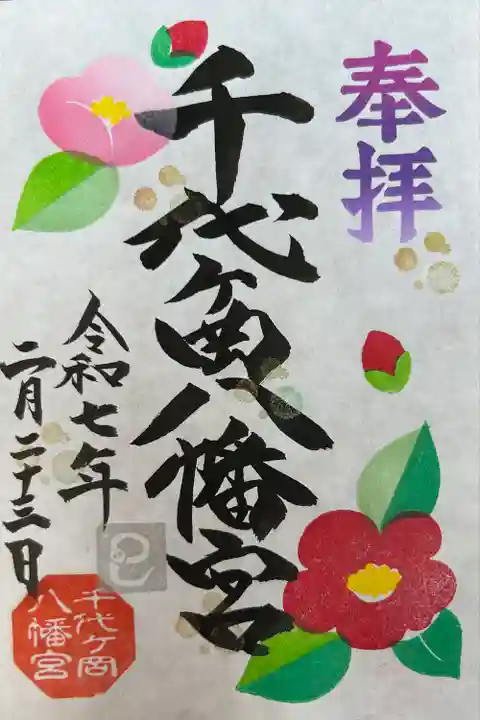 奉拝
千代ヶ岡八幡宮
令和七年
二月二十三日
千代ヶ岡
八幡宮